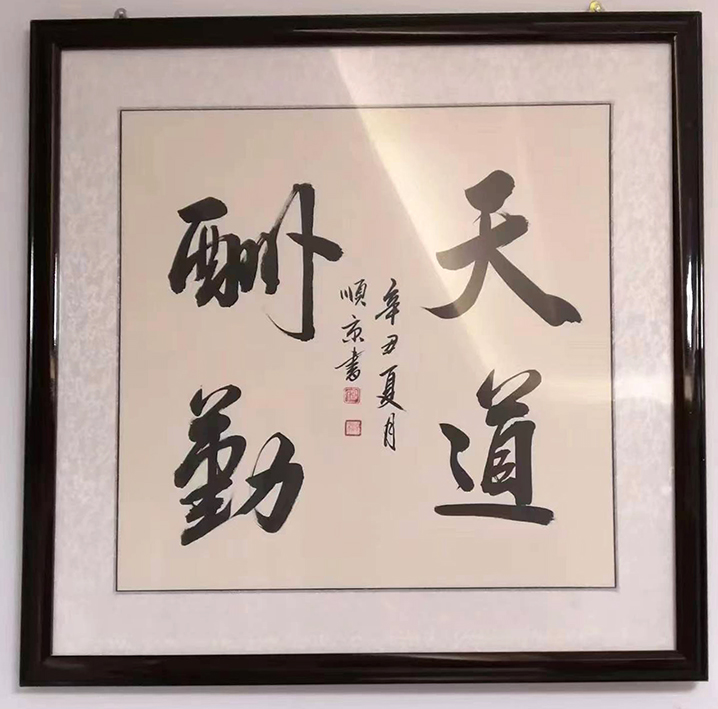 天道
酬勤
辛丑夏月
順京書